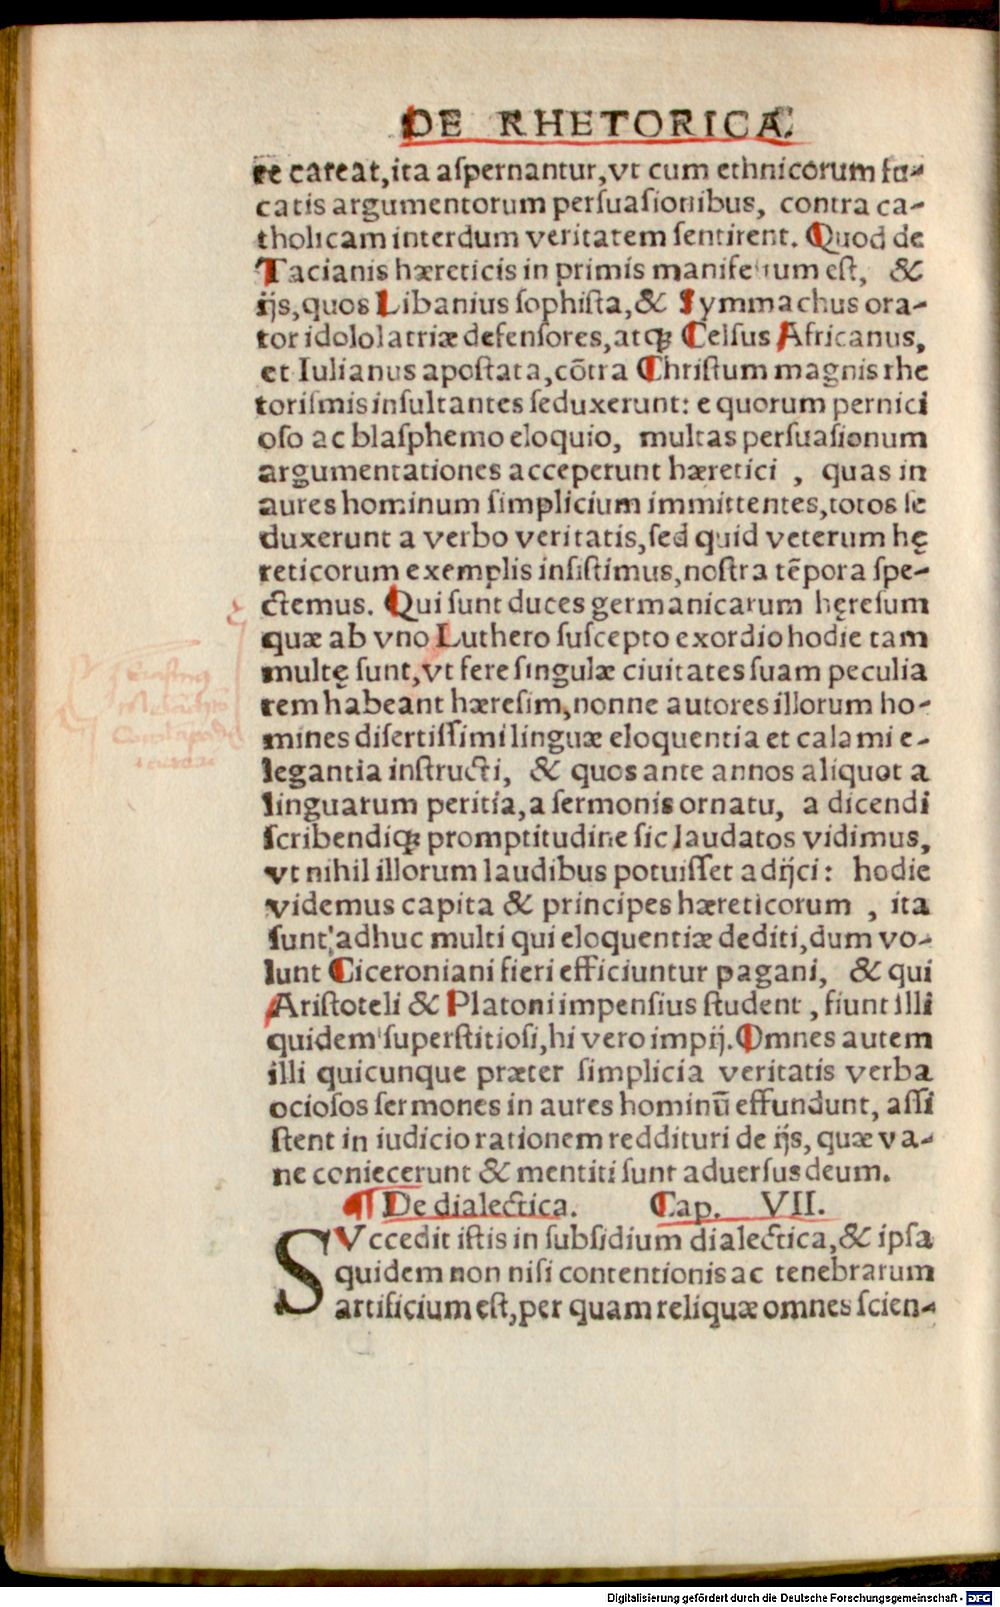 DE RHETORICA.
re careat, ita aſpernantur, vt cum ethnicorum fu-
catis argumentorum perſuaſionibus, contra ca-
tholicam interdum veritatem ſentirent. Quod de
Tacianis hæreticis in primis manifeſtum eſt, &
ijs, quos Libanius ſophiſta, & Symmachus ora-
tor idololatriæ defenſores, atqꝫ Celſus Africanus,
et Iulianus apoſtata, cõtra Chriſtum magnis rhe
toriſmis inſultantes ſeduxerunt: e quorum pernici
oſo ac blaſphemo eloquio, multas perſuaſionum
argumentationes acceperunt hæretici , quas in
aures hominum ſimplicium immittentes, totos ſe
duxerunt a verbo veritatis, ſed quid veterum hę
reticorum exemplis inſiſtimus, noſtra tẽpora ſpe-
ctemus. Qui ſunt duces germanicarum hęreſum
quæ ab vno Luthero ſuſcepto exordio hodie tam
multę ſunt, vt fere ſingulæ ciuitates ſuam peculia
rem habeant hæreſim, nonne autores illorum ho-
mines diſertiſſimi linguæ eloquentia et calami e-
legantia inſtructi, & quos ante annos aliquot a
linguarum peritia, a ſermonis ornatu, a dicendi
ſcribendiqꝫ promptitudine ſic laudatos vidimus,
vt nihil illorum laudibus potuiſſet adijci: hodie
videmus capita & principes hæreticorum , ita
ſunt adhuc multi qui eloquentiæ dediti, dum vo-
lunt Ciceroniani fieri efficiuntur pagani, & qui
Ariſtoteli & Platoni impenſius ſtudent , fiunt illi
quidem ſuperſtitioſi, hi vero impij. Omnes autem
illi quicunque præter ſimplicia veritatis verba
ocioſos ſermones in aures hominũ effundunt, aſſi
ſtent in iudicio rationem reddituri de ijs, quæ va-
ne coniecerunt & mentiti ſunt aduerſus deum.
¶ De dialectica. Cap. VII.
SVccedit iſtis in ſubſidium dialectica, & ipſa
quidem non niſi contentionis ac tenebrarum
artificium eſt, per quam reliquæ omnes ſcien-
Digitalisierung gefördert durch die Deutsche Forschungsgemeinschaft - DFG